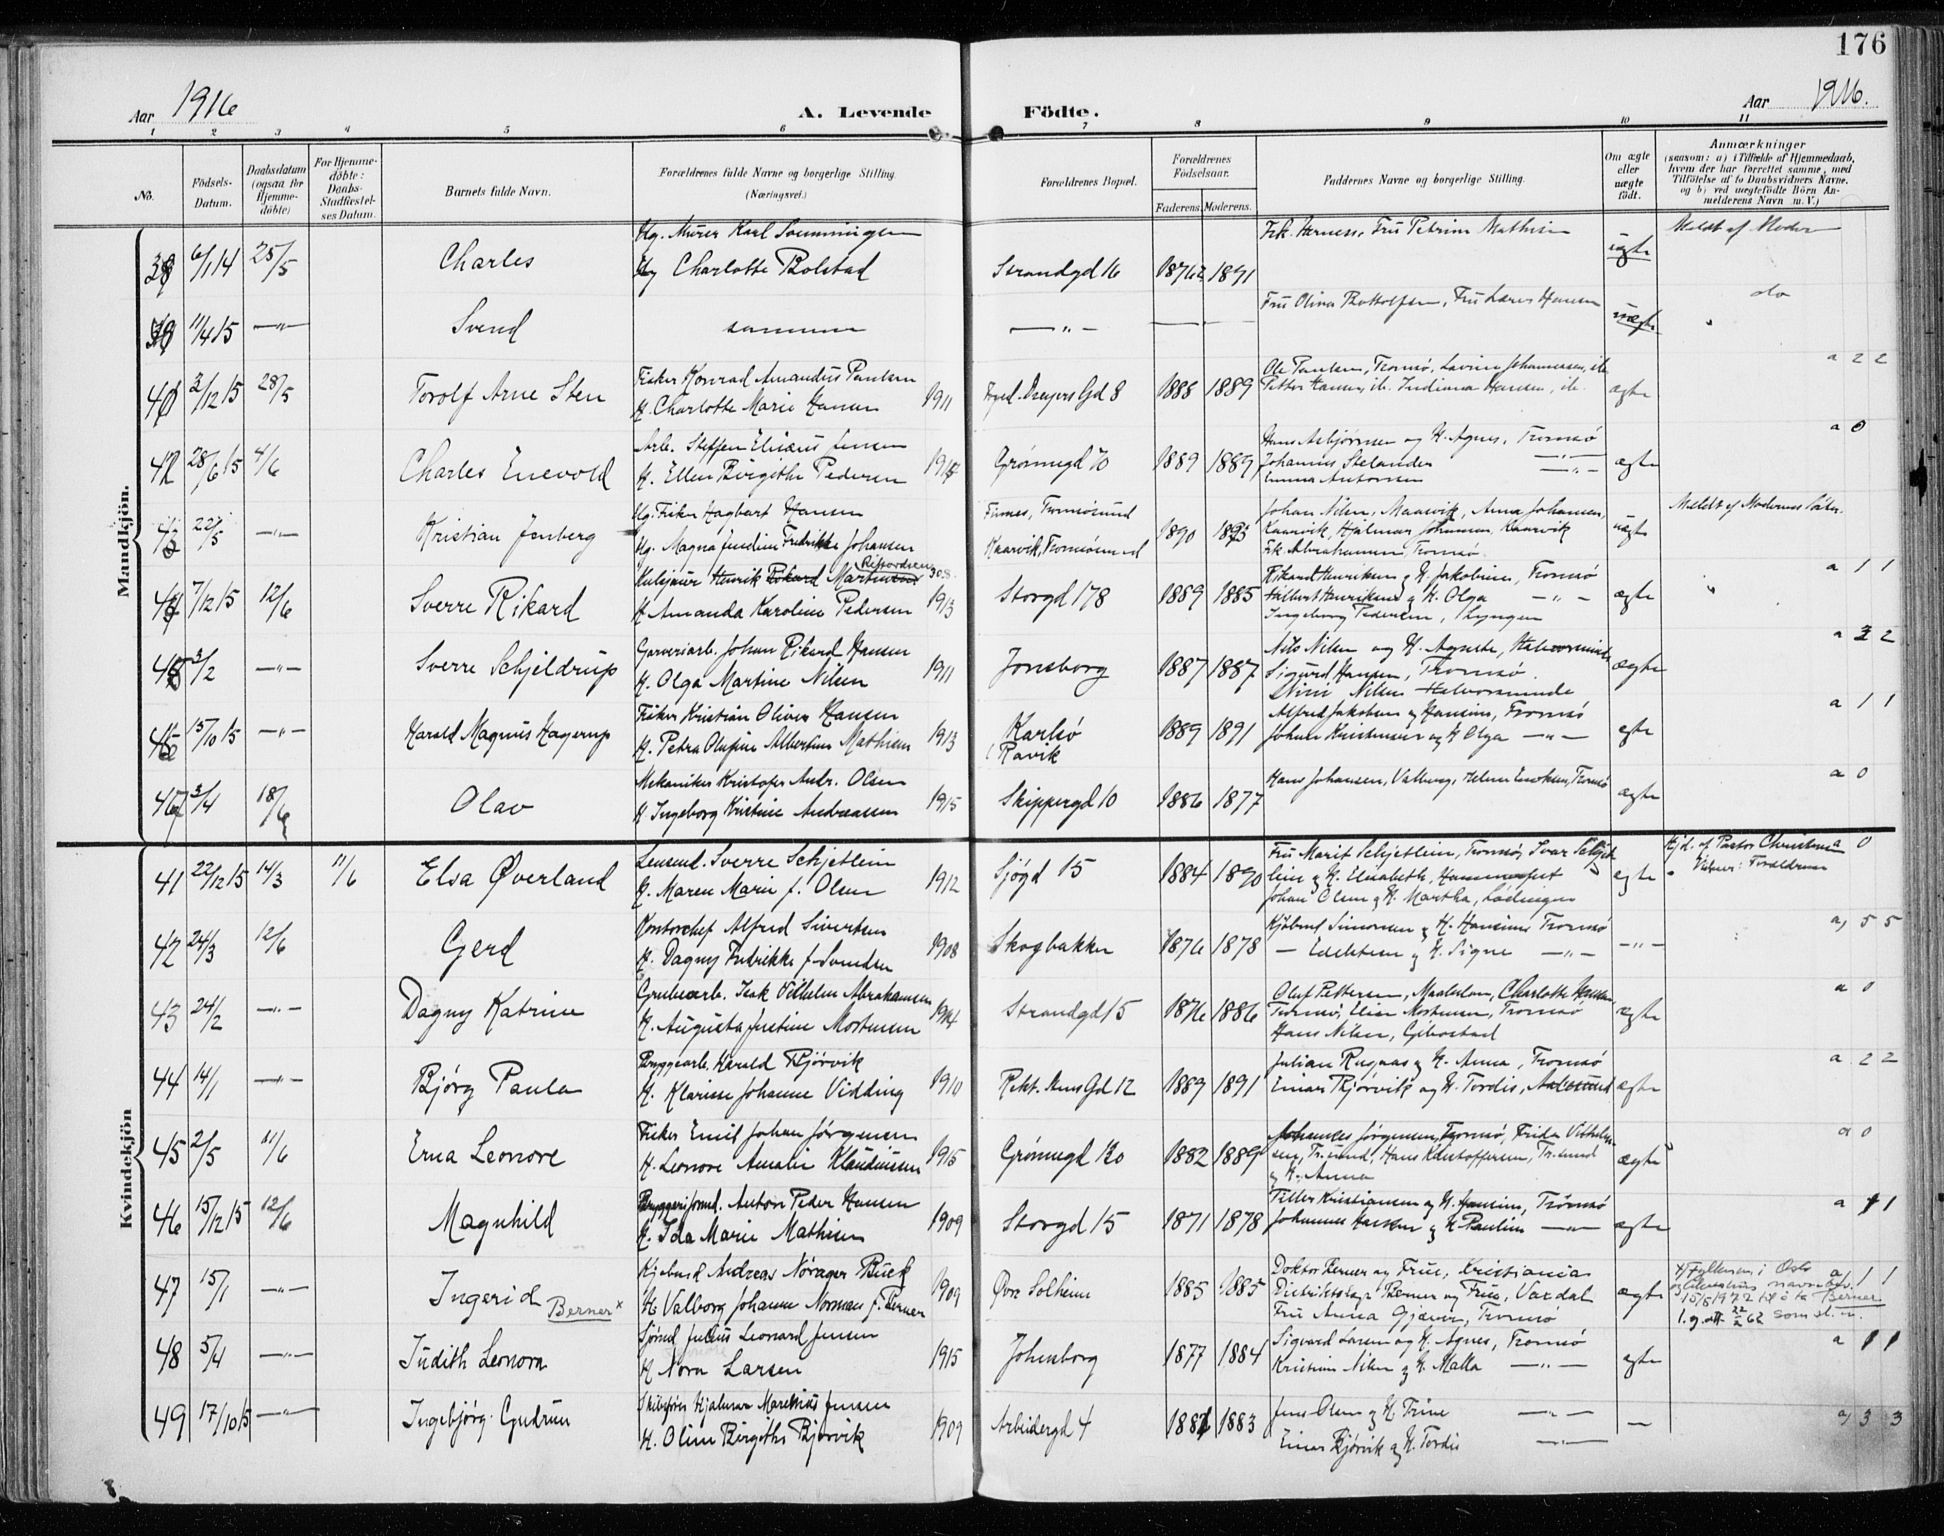 176
Aar 1916
A. Levende
Födte.
Aar 1916.
1 2 3 4 5 6 7 8 9 10 11
No.
Födsels-Datum.
Daabsdatum (ogsaa for Hjemmedöbte)
For Hjemmedöbte: Daabs-Stadfæstelses Datum.
Barnets fulde Navn.
Forældrenes fulde Navne og borgerlige Stilling (Næringsvei.)
Forældrenes Bopæl.
Forældrenes Födselsaar.
Faderens. Moderens.
Faddernes Navne og borgerlige Stilling.
Om ægte eller uægte födt.
Anmærkninger
(saasom: a) i Tilfælde af Hjemmedaab, hvem der har forrettet samme, med Tilföielse af to Daabsvidners Navne, og b) ved uægtefödte Börn Anmelderens Navn m. V.)
Mandkjön.
6/1 14 25/5 Charles
Ug. Murer Karl
Ug Charlotte Bolstad
Strandgd 16 1891
Frk. Hernes, Fru Petrine Mathisen
uægte
Meldt af Moder
11/4 15 —"— Svend
samme
—"—
uægte
do
3/12 15 28/5 Torolf Arne Sten
Fisker Konrad Amandus Paulsen
H. Charlotte Marie Hansen 1911
Gd 8 1888 1889
Ole Paulsen, Tromsø, Lovise Johannesen, ib.
Petter Hansen, ib. Indiana Hansen, ib.
ægte
a 2 2
28/6 15 4/6 Charles Enevold
Arb. Steffen Elisæus Jensen
H. Ellen Birgithe Pedersen
Grønnegd 70 1889 1889
Hans Asbjørnsen og H. Agnes, Tromsø
Johannes Stelander —"—
Emma Antonsen
ægte
a 0
22/5 —"— Kristian Jenberg
Ug. Fisker Hagbart Hansen
Ug. Magna Jendine Fredrikke Johansen
Finnes, Tromøsund
Kaarvik, Tromøsund
1890
Johan Nilsen, Maasvik, Anna Johansen,
Kaarvik, Hjalmar Johansen, Kaarvik
Frk. Abrahamsen Tromsø.
uægte
Meldt af Moderens Søster.
7/12 15 12/6 Sverre Rikard
Henrik Rikard
H Amanda Karoline Pedersen 1913
Storgd 178 1889 1885
Rikard Henriksen og H. Jakobine, Tromsø
Hilbert Henriksen og H. Olga —"—
Ingeborg Pedersen, Lyngen
ægte
a 1 1
3/2 —"— Sverre Schjeldrup
Garveriarb. Johan Rikard Hansen
H. Olga Martine Nilsen 1911
Jonsborg 1887 1887
Nils Nilsen og H. Agnete,
Sigurd Hansen, Tromsø.
ægte
15/10 15 —"— Harald Magnus Hagerup
Fisker Kristian Oliver Hansen
H. Petra Olufine Albertine Mathisen 1913
Karlsø
Ravik
1889 1891
Alfred Jakobsen og Hansine, Tromsø
Johan Kristensen og H Olga —"—
ægte
a 1 1
3/4 18/6 Olav
Mekaniker Kristofer Andr. Olsen
H. Ingeborg Kristine Andreassen 1915
Skippergd 10 1886 1877
Hans Johansen, Valberg, Helene Enoksen, Tromsø
ægte
a 0
Kvindekjön
41 22/12 15 14/3 11/6 Elsa Øverland
Lensmd. Sverre Schjetlein
H. Maren Marie f. Olsen 1912
Sjøgd 15 1884 1890
Fru Marit Schjetlein, Tromsø, Ivar Schjet-
lein og H. Elisabeth, Hammerfest
Johan Olsen og H. Martha, Lødingen
ægte
Hjd. af Pastor Christensen
Vidner: Forældrene
a 0
42 24/3 12/6 Gerd
Kontorchef Alfred Sivertsen
H. Dagny Fredrikke f. Svendsen 1908
Skogbakken 1876 1878
Kjøbmd Simonsen og H. Hansine Tromsø
— Edelsteen og H. Signe —"—
—"—
a, 5 5
43 24/2 —"— Dagny Katrine
Grubearb. Isak Vilhelm Abrahamsen
H. Augusta Justine Mortensen 1914
Strandgd 15 1876 1886
Oluf Pettersen, Maalselven, Charlotte Hansen
Tromsø, Elise Mortensen, Tromsø
Hans Nilsen, Gibostad
ægte
a 0
44 14/1 —"— Bjørg Paula
Bryggearb. Harald Bjørvik
H. Klarisse Johanne Vidding 1910
Rekt. Gd 12 1889 1891
Julian Rugaas og H. Anna, Tromsø
Einar Bjørvik og H. Tordis, Aalesund
ægte
a 2 2
45 2/5 11/6 Erna Leonore
Fisker Emil Johan Jørgensen
H. Leonore Amalie Klaudiussen 1915
Grønnegd 120 1882 1889
Johannes Jørgensen, Tromsø, Frika Vilhelm-
sen, Tr.sund, Hans Kristoffersen, Tr.sund
og H. Anna
ægte
a 0
46 15/12 15 12/6 Magnhild
Bryggeriformd. Anton Peder Hansen
H. Ida Marie Mathisen 1909
Storgd 15 1871 1878
Kristiansen og H. Hansine, Tromsø
Johannes Hansen og H Pauline —"—
ægte
a 1 1
47 15/1 —"— Ingerid Berner x
Kjøbmd Andreas Norager Buck
H. Valborg Johanne Norman f. Berner 1909
Øvre Solheim 1885 1885
Doktor Berner og Frue, Kristiania
Distriktslæge Berner og Frue, Vardal
Fru Anna Gjæver, Tromsø
ægte
x) Fylkesm. i Oslo
navnebev.
15/5 1922 til å ta Berner
som sl.n.
a, 1 1
48 5/4 —"— Judith Leonora
Sjømd Julius Leonard Jensen
H Nora Larsen 1915
Johnborg 1877 1884
Sigvard Larsen og H. Agnes, Tromsø
Kristian Nilsen og H. Malla —"—
ægte
a 1 1
49 17/10 15 —"— Ingebjørg Gudrun
Skibsfører Hjalmar Jensen
H. Oline Birgitha Bjørvik 1909
Arbeidergd 4 1881 1883
Jens Olsen og H Trine —"—
Einar Bjørvik og H. Tordis —"—
—
a, 3 3